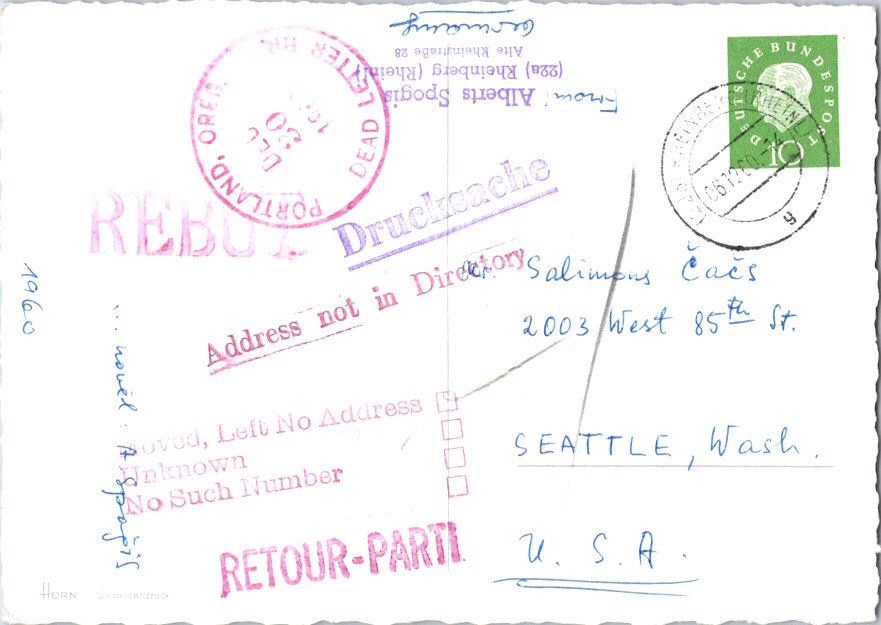 From: Alberts Spogis
(22a) Rheinberg (Rheinl)
Alte Rheinstraße 28
Germany
DEUTSCHE BUNDESPOST
10
06.12.60
PORTLAND, OREG.
DEC
20
DEAD LETTER BR.
REBUT
Drucksache
Address not in Directory
Salimons Čačs
2003 West 85th St.
SEATTLE, Wash.
U. S. A.
Moved, Left No Address
Unknown
No Such Number
RETOUR-PARTI
1960
... novēl A Spoģis
HORN